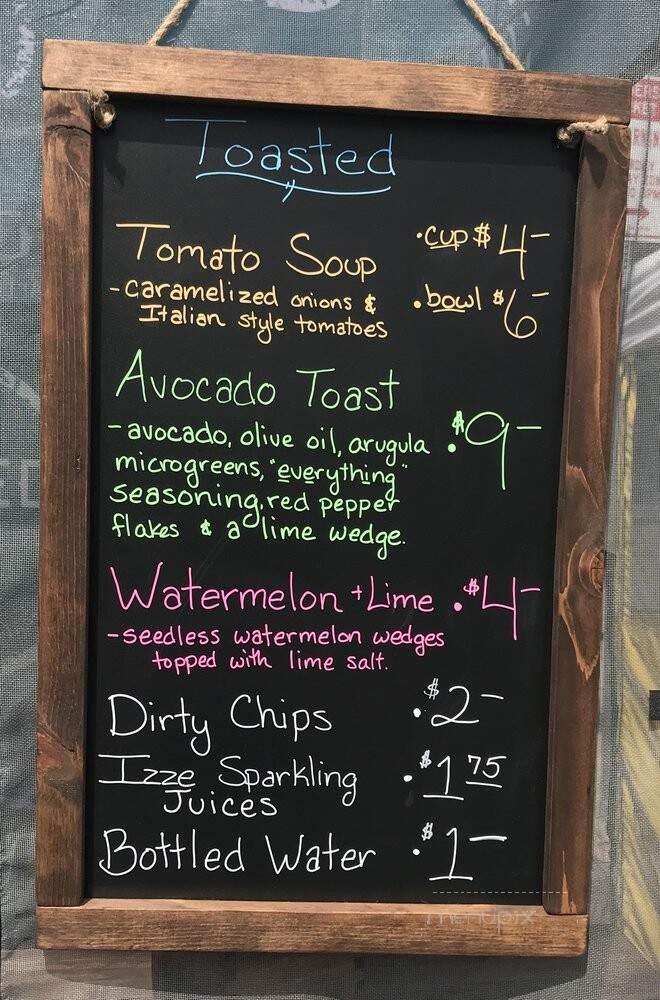 Toasted
Tomato Soup
• cup $4-
- caramelized onions &
Italian style tomatoes
• bowl $6-
Avocado Toast
- avocado, olive oil, arugula
• $9-
microgreens, "everything"
seasoning, red pepper
flakes & a lime wedge.
Watermelon + Lime • $4-
- seedless watermelon wedges
topped with lime salt.
Dirty Chips • $2-
Izze Sparkling • $1 75
Juices
Bottled Water • $1-
menupix